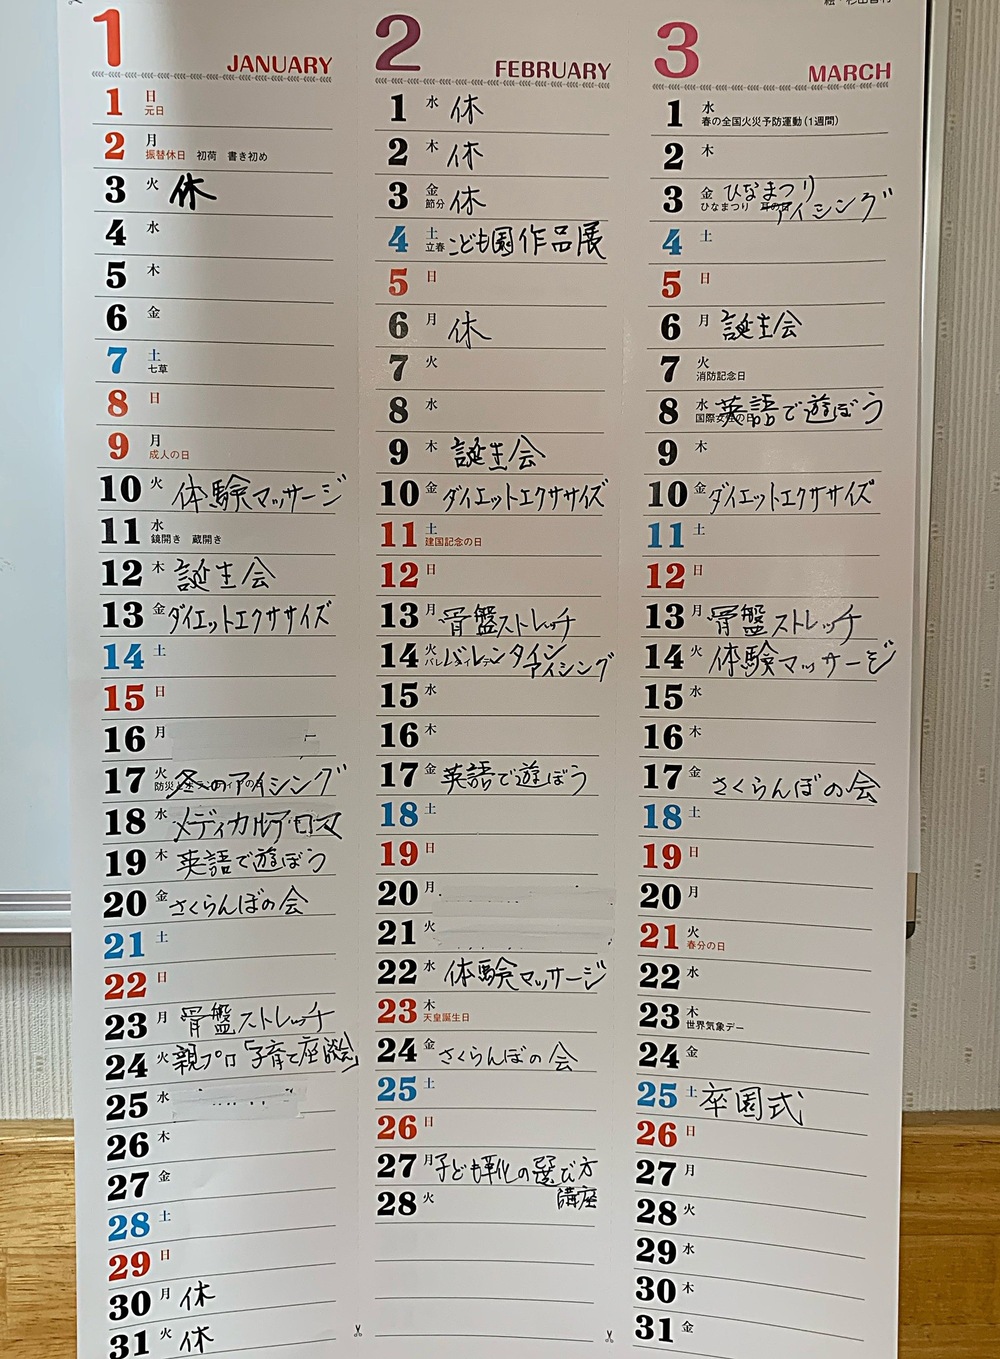 1
JANUARY
1 日
元日
2 月
振替休日 初荷 書き初め
3 火 休
4 水
5 木
6 金
7 土
七草
8 日
9 月
成人の日
10 火 体験マッサージ
11 水
鏡開き 蔵開き
12 木 誕生会
13 金 ダイエットエクササイズ
14 土
15 日
16 月
17 火 冬のアイシング
18 水 メディカルアロマ
19 木 英語で遊ぼう
20 金 さくらんぼの会
21 土
22 日
23 月 骨盤ストレッチ
24 火 親プロ「子育て座談会」
25 水
26 木
27 金
28 土
29 日
30 月 休
31 火 休
2
FEBRUARY
1 水 休
2 木 休
3 金 休
節分
4 土 こども園作品展
立春
5 日
6 月 休
7 火
8 水
9 木 誕生会
10 金 ダイエットエクササイズ
11 土
建国記念の日
12 日
13 月 骨盤ストレッチ
14 火 バレンタイン
アイシング
15 水
16 木
17 金 英語で遊ぼう
18 土
19 日
20 月
21 火
22 水 体験マッサージ
23 木
天皇誕生日
24 金 さくらんぼの会
25 土
26 日
27 月 子ども靴の選び方
28 火 講座
絵・杉田香利
3
MARCH
1 水
春の全国火災予防運動(1週間)
2 木
3 金 ひなまつり
ひなまつり 耳の日 アイシング
4 土
5 日
6 月 誕生会
7 火
消防記念日
8 水 英語で遊ぼう
国際女性の日
9 木
10 金 ダイエットエクササイズ
11 土
12 日
13 月 骨盤ストレッチ
14 火 体験マッサージ
15 水
16 木
17 金 さくらんぼの会
18 土
19 日
20 月
21 火
春分の日
22 水
23 木
世界気象デー
24 金
25 土 卒園式
26 日
27 月
28 火
29 水
30 木
31 金